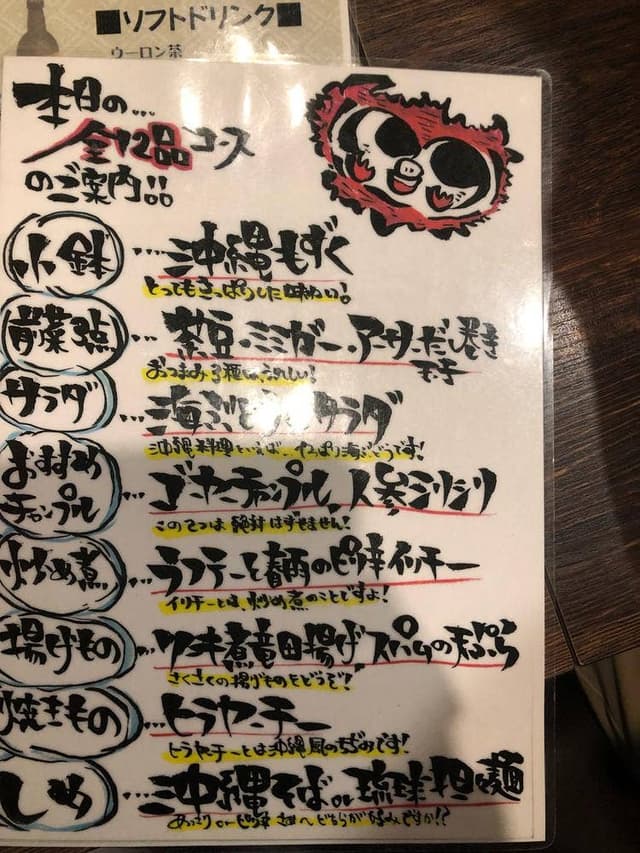 ■ソフトドリンク■
ウーロン茶
本日の…
全12品コース
のご案内!!
小鉢…沖縄もずく
とってもさっぱりした味わい!
前菜3点…紫豆・ミミガー・アーサーだし巻き玉子
おつまみ3種は、うれしい!
サラダ…海ぶどうのサラダ
沖縄料理といえば、やっぱり海ぶどうです!
おすすめチャンプル…ゴーヤーチャンプル、人参シリシリ
この2つは絶対はずせません!
炒め煮…ラフテーと麺のピリ辛イリチー
イリチーとは、炒め煮のことですよ!
揚げもの…煮竜田揚げ スパムの天ぷら
さくさくの揚げものをどうぞ!
焼きもの…ヒラヤーチー
ヒラヤーチーとは沖縄風のちぢみです!
しめ…沖縄そば or 琉球担々麺
あっさり or ピリ辛 どちらがお好みですか!?